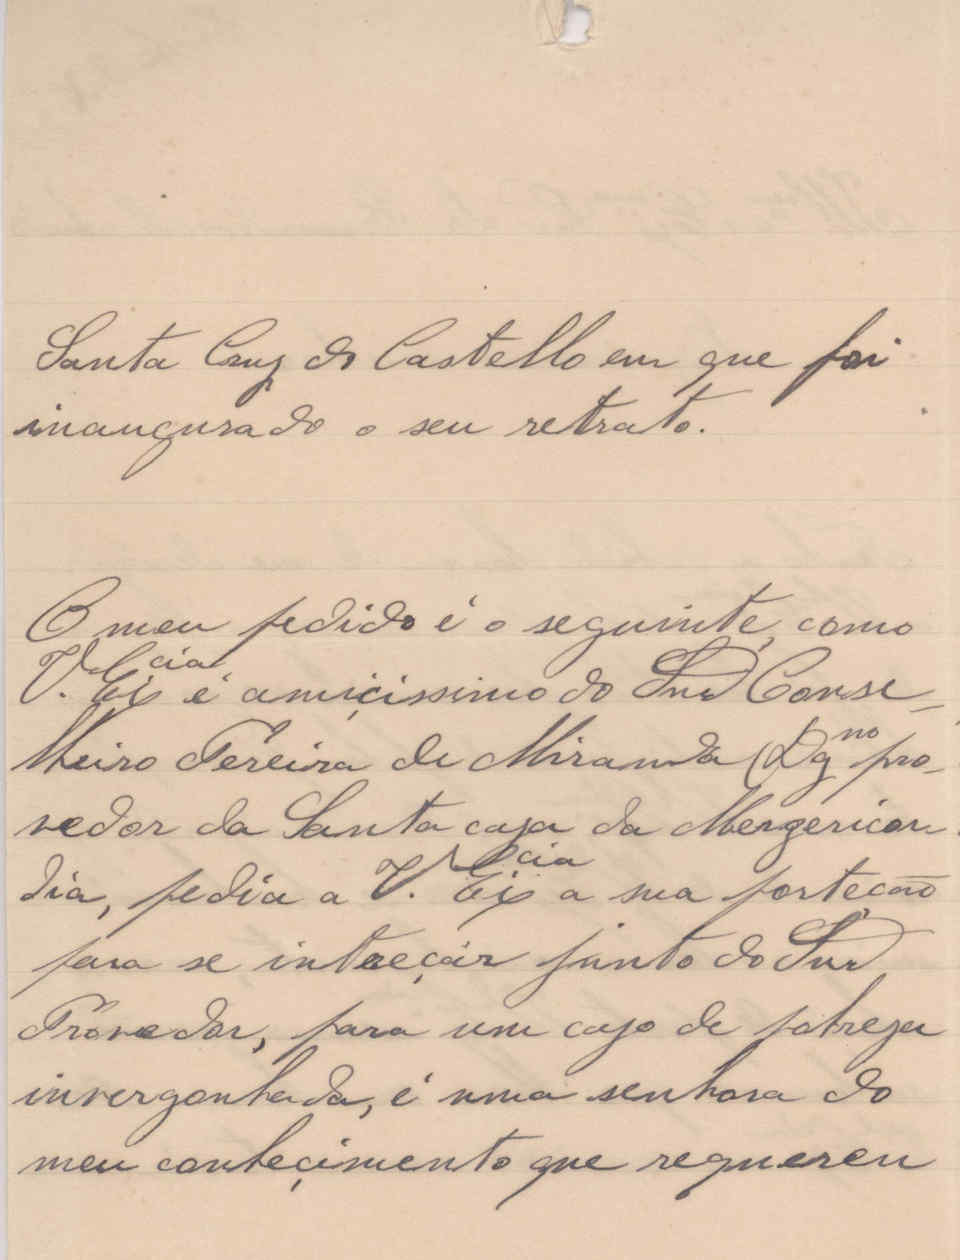 Santa Cruz do Castello em que foi
inaugurado o seu retrato.
O meu pedido é o seguinte, como
V. Ex.cia é amiçissimo do Snr Conse-
lheiro Pereira de Miranda (Dg.no pro-
vedor da Santa caza da Mezericor-
dia, pedia a V. Ex.cia a sua porteção
para se intreçár junto do Snr
Provedor, para um cazo de pobreza
invergonhada, é uma senhora do
meu conheçimento que requereu